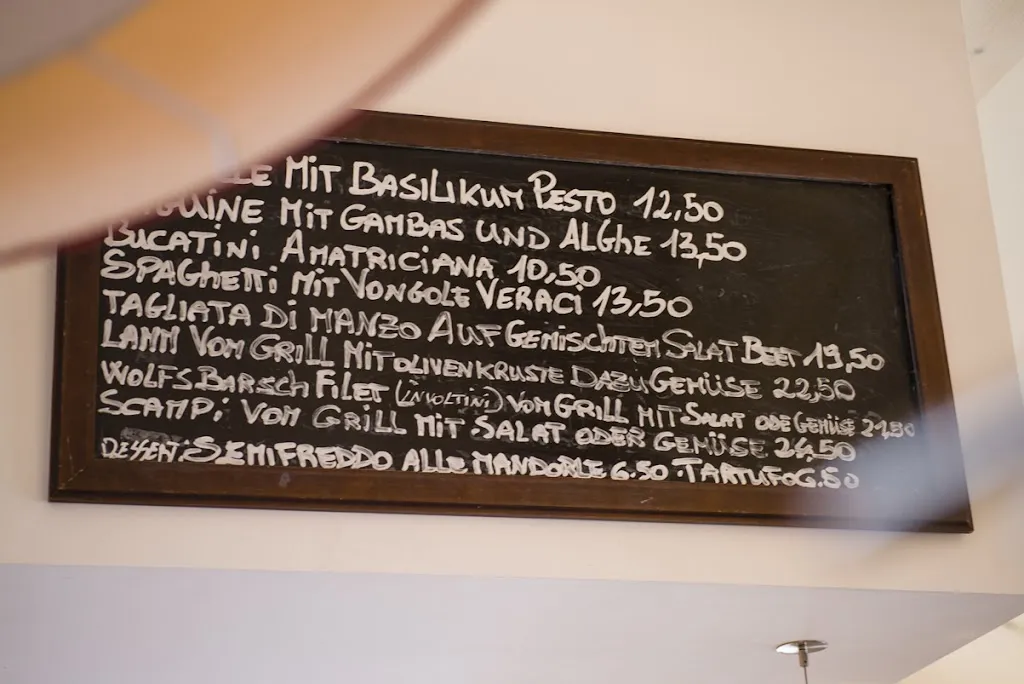 Mit Basilikum Pesto 12,50
Mit Gambas und Alghe 13,50
Bucatini Amatriciana 10,50
Spaghetti Mit Vongole Veraci 13,50
Tagliata di Manzo Auf Gemischtem Salat Beet 19,50
Lamm Vom Grill Mit Olivenkruste Dazu Gemüse 22,50
Wolfsbarsch Filet (involtini) vom Grill mit Salat ode Gemüse 21,50
Scampi vom Grill mit Salat oder Gemüse 24,50
Semifreddo alle Mandorle 6.50 · Tartufo 6.50